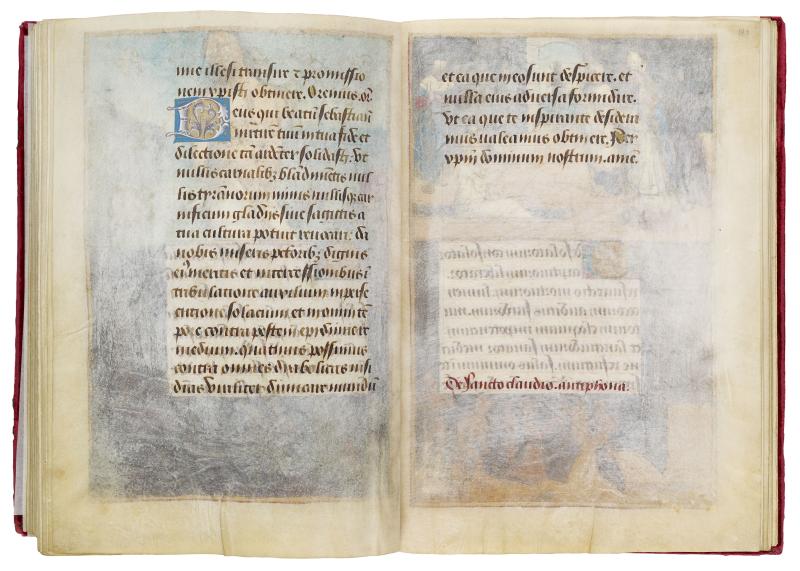 mie illesi transire ⁊ promissio
nem xp̄isti obtinere. Oremus. or̄
Deus qui beatū sebastianū
martirē tuum in tua fide et
dilectione tā ardēter solidasti. Vt
nullis carnalibꝫ blādimētis nul
lis tyrānorum minis nullisqꝫ car
nificum gladijs siue sagittis a
tua cultura potuit reuocari: da
nobis miseris pctoribꝫ dignis
eiꝰ meritis et intercessionibus ī
tribulatione auxilium in perse
cutione solacium et in omni tē
pore contra pestem epydimie re
medium. quatinus possimus
contra omnes dyabolicas īsi
dias viriliter dimicare mundū
et ea que in eo sunt despicere. et
nulla eius aduersa formidare.
Vt ea que te inspirante desidera
mus ualeamus obtinere. Per
xp̄m dominum nostrum. amē.
De sancto claudio. antiphona.